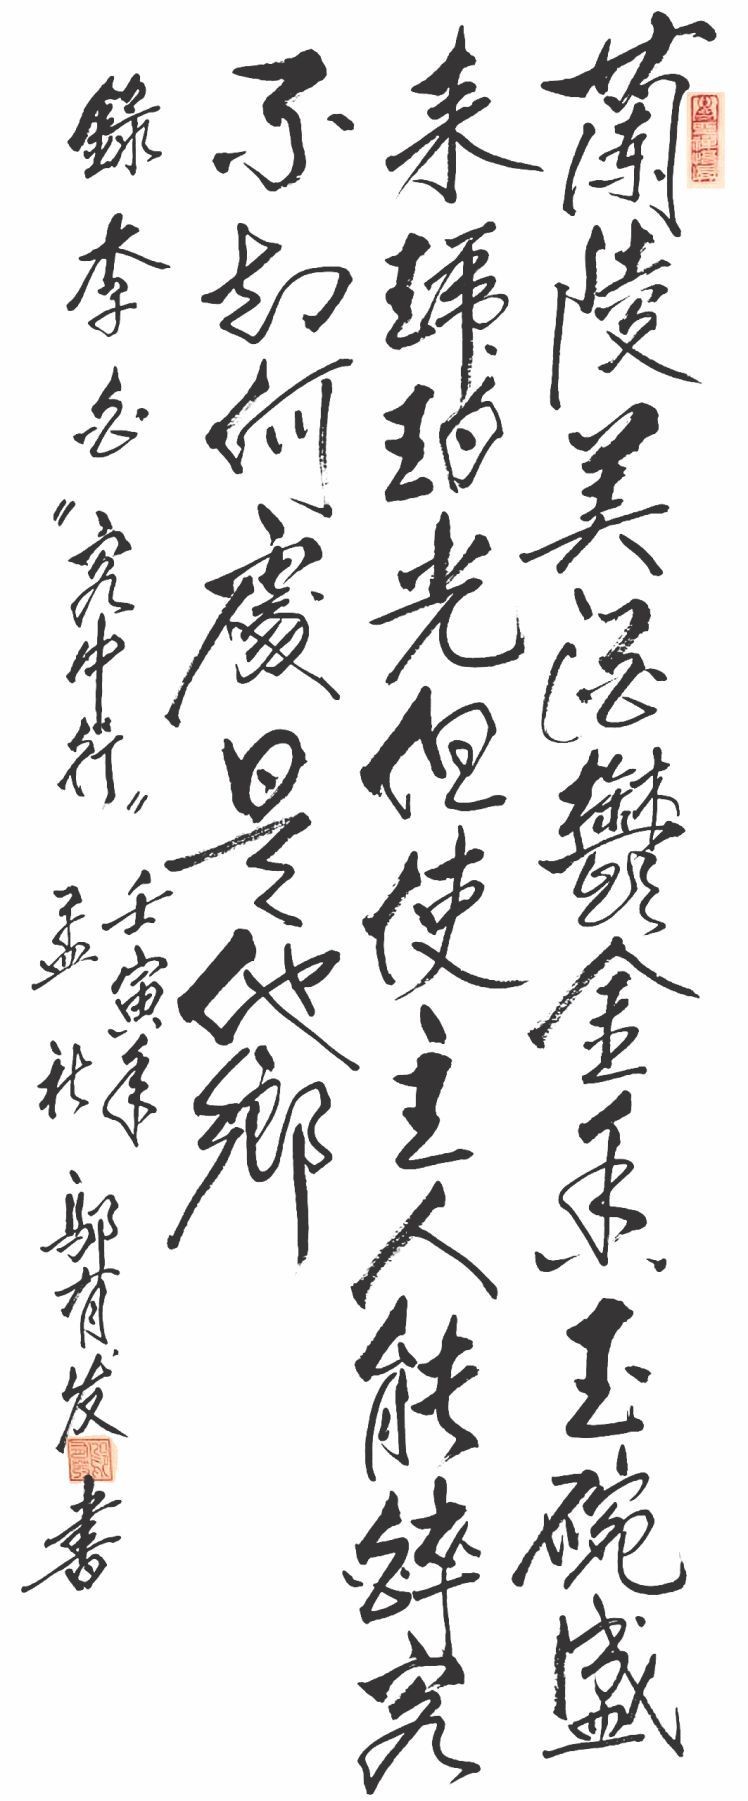 蘭陵美酒鬱金香玉碗盛
来琥珀光但使主人能醉客
不知何處是他鄉
錄李白“客中行”
壬寅年
孟秋
鄔有发书